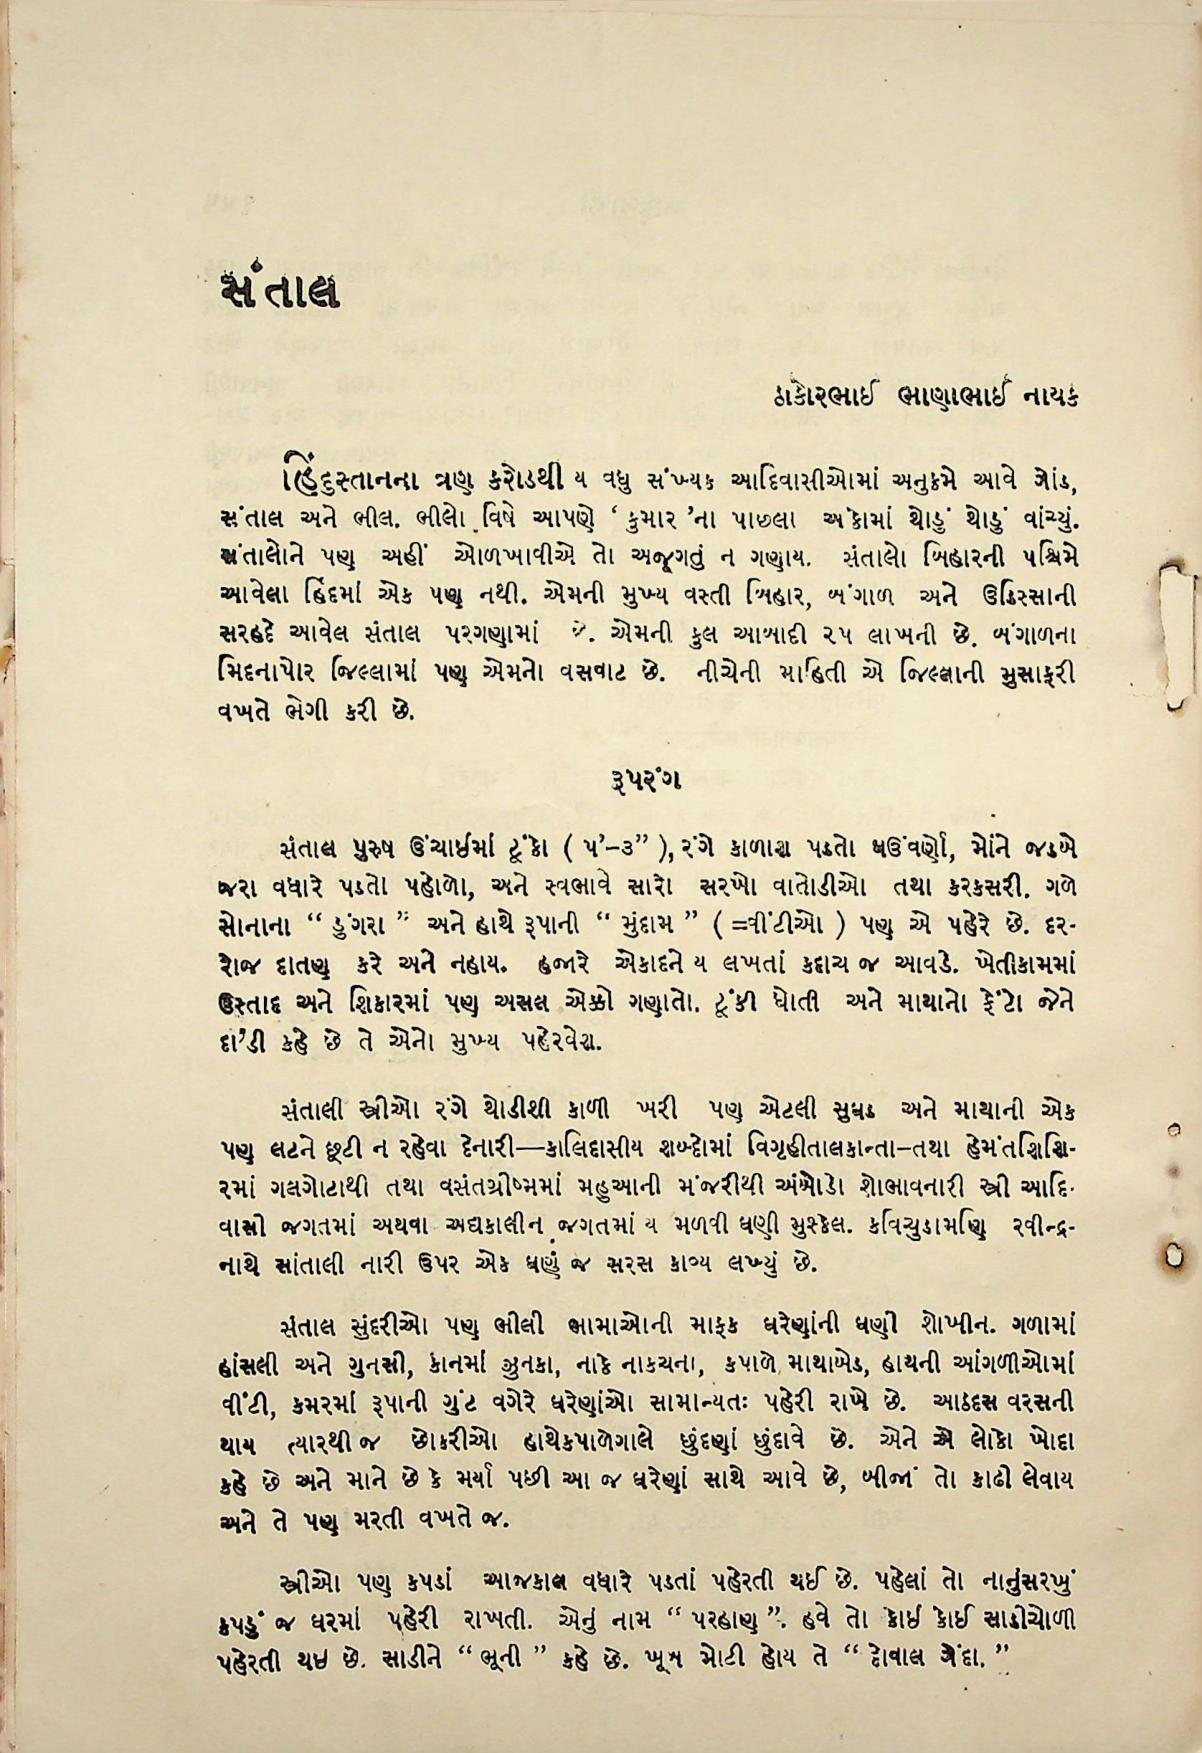 સંતાલ
ઠાકોરભાઈ ભાણાભાઈ નાયક
હિંદુસ્તાનના ત્રણ કરોડથી ય વધુ સંખ્યક આદિવાસીઓમાં અનુક્રમે આવે ગોંડ,
સંતાલ અને ભીલ. ભીલો વિષે આપણે ‘ કુમાર ’ના પાછલા અંકોમાં થોડું થોડું વાંચ્યું.
સંતાલોને પણ અહીં ઓળખાવીએ તો અજૂગતું ન ગણાય. સંતાલો બિહારની પશ્ચિમે
આવેલા હિંદમાં એક પણ નથી. એમની મુખ્ય વસ્તી બિહાર, બંગાળ અને ઉડિસ્સાની
સરહદે આવેલ સંતાલ પરગણામાં છે. એમની કુલ આબાદી ૨૫ લાખની છે. બંગાળના
મિદનાપોર જિલ્લામાં પણ એમનો વસવાટ છે. નીચેની માહિતી એ જિલ્લાની મુસાફરી
વખતે ભેગી કરી છે.
રૂપરંગ
સંતાલ પુરુષ ઉંચાઈમાં ટૂંકો ( ૫’–૩” ), રંગે કાળાશ પડતો ઘઉંવર્ણો, મોંને જડબે
જરા વધારે પડતો પહોળો, અને સ્વભાવે સારો સરખો વાતોડીઓ તથા કરકસરી. ગળે
સોનાના “ ડુંગરા ” અને હાથે રૂપાની “ મુંદામ ” ( =વીંટીઓ ) પણ એ પહેરે છે. દર-
રોજ દાતણ કરે અને નહાય. હજારે એકાદને ય લખતાં કદાચ જ આવડે. ખેતીકામમાં
ઉસ્તાદ અને શિકારમાં પણ અસલ એક્કો ગણાતો. ટૂંકી ધોતી અને માથાનો ફેંટો જેને
દા’ડી કહે છે તે એનો મુખ્ય પહેરવેશ.
સંતાલી સ્ત્રીઓ રંગે થોડીશી કાળી ખરી પણ એટલી સુઘડ અને માથાની એક
પણ લટને છૂટી ન રહેવા દેનારી—કાલિદાસીય શબ્દોમાં વિગૃહીતાલકાન્તા–તથા હેમંતશિશિ-
રમાં ગલગોટાથી તથા વસંતગ્રીષ્મમાં મહુઆની મંજરીથી અંબોડો શોભાવનારી સ્ત્રી આદિ-
વાસી જગતમાં અથવા અદ્યકાલીન જગતમાં ય મળવી ઘણી મુશ્કેલ. કવિચુડામણિ રવીન્દ્ર-
નાથે સાંતાલી નારી ઉપર એક ઘણું જ સરસ કાવ્ય લખ્યું છે.
સંતાલ સુંદરીઓ પણ ભીલી ભામાઓની માફક ઘરેણાંની ઘણી શોખીન. ગળામાં
હાંસલી અને ગુનસી, કાનમાં ઝુનકા, નાકે નાકચના, કપાળે માથાબેડ, હાથની આંગળીઓમાં
વીંટી, કમરમાં રૂપાની ગુંટ વગેરે ઘરેણાંઓ સામાન્યતઃ પહેરી રાખે છે. આઠદસ વરસની
થાય ત્યારથી જ છોકરીઓ હાથેકપાળેગાલે છુંદણાં છુંદાવે છે. એને એ લોકો ખોદા
કહે છે અને માને છે કે મર્યા પછી આ જ ઘરેણાં સાથે આવે છે, બીજાં તો કાઢી લેવાય
અને તે પણ મરતી વખતે જ.
સ્ત્રીઓ પણ કપડાં આજકાલ વધારે પડતાં પહેરતી થઈ છે. પહેલાં તો નાનુંસરખું
કપડું જ ઘરમાં પહેરી રાખતી. એનું નામ “ પરહાણ ”. હવે તો કોઈ કોઈ સાડીચોળી
પહેરતી થઇ છે. સાડીને “ ભૂની ” કહે છે. ખૂબ મોટી હોય તે “ દોવાલ ગેંદા. ”